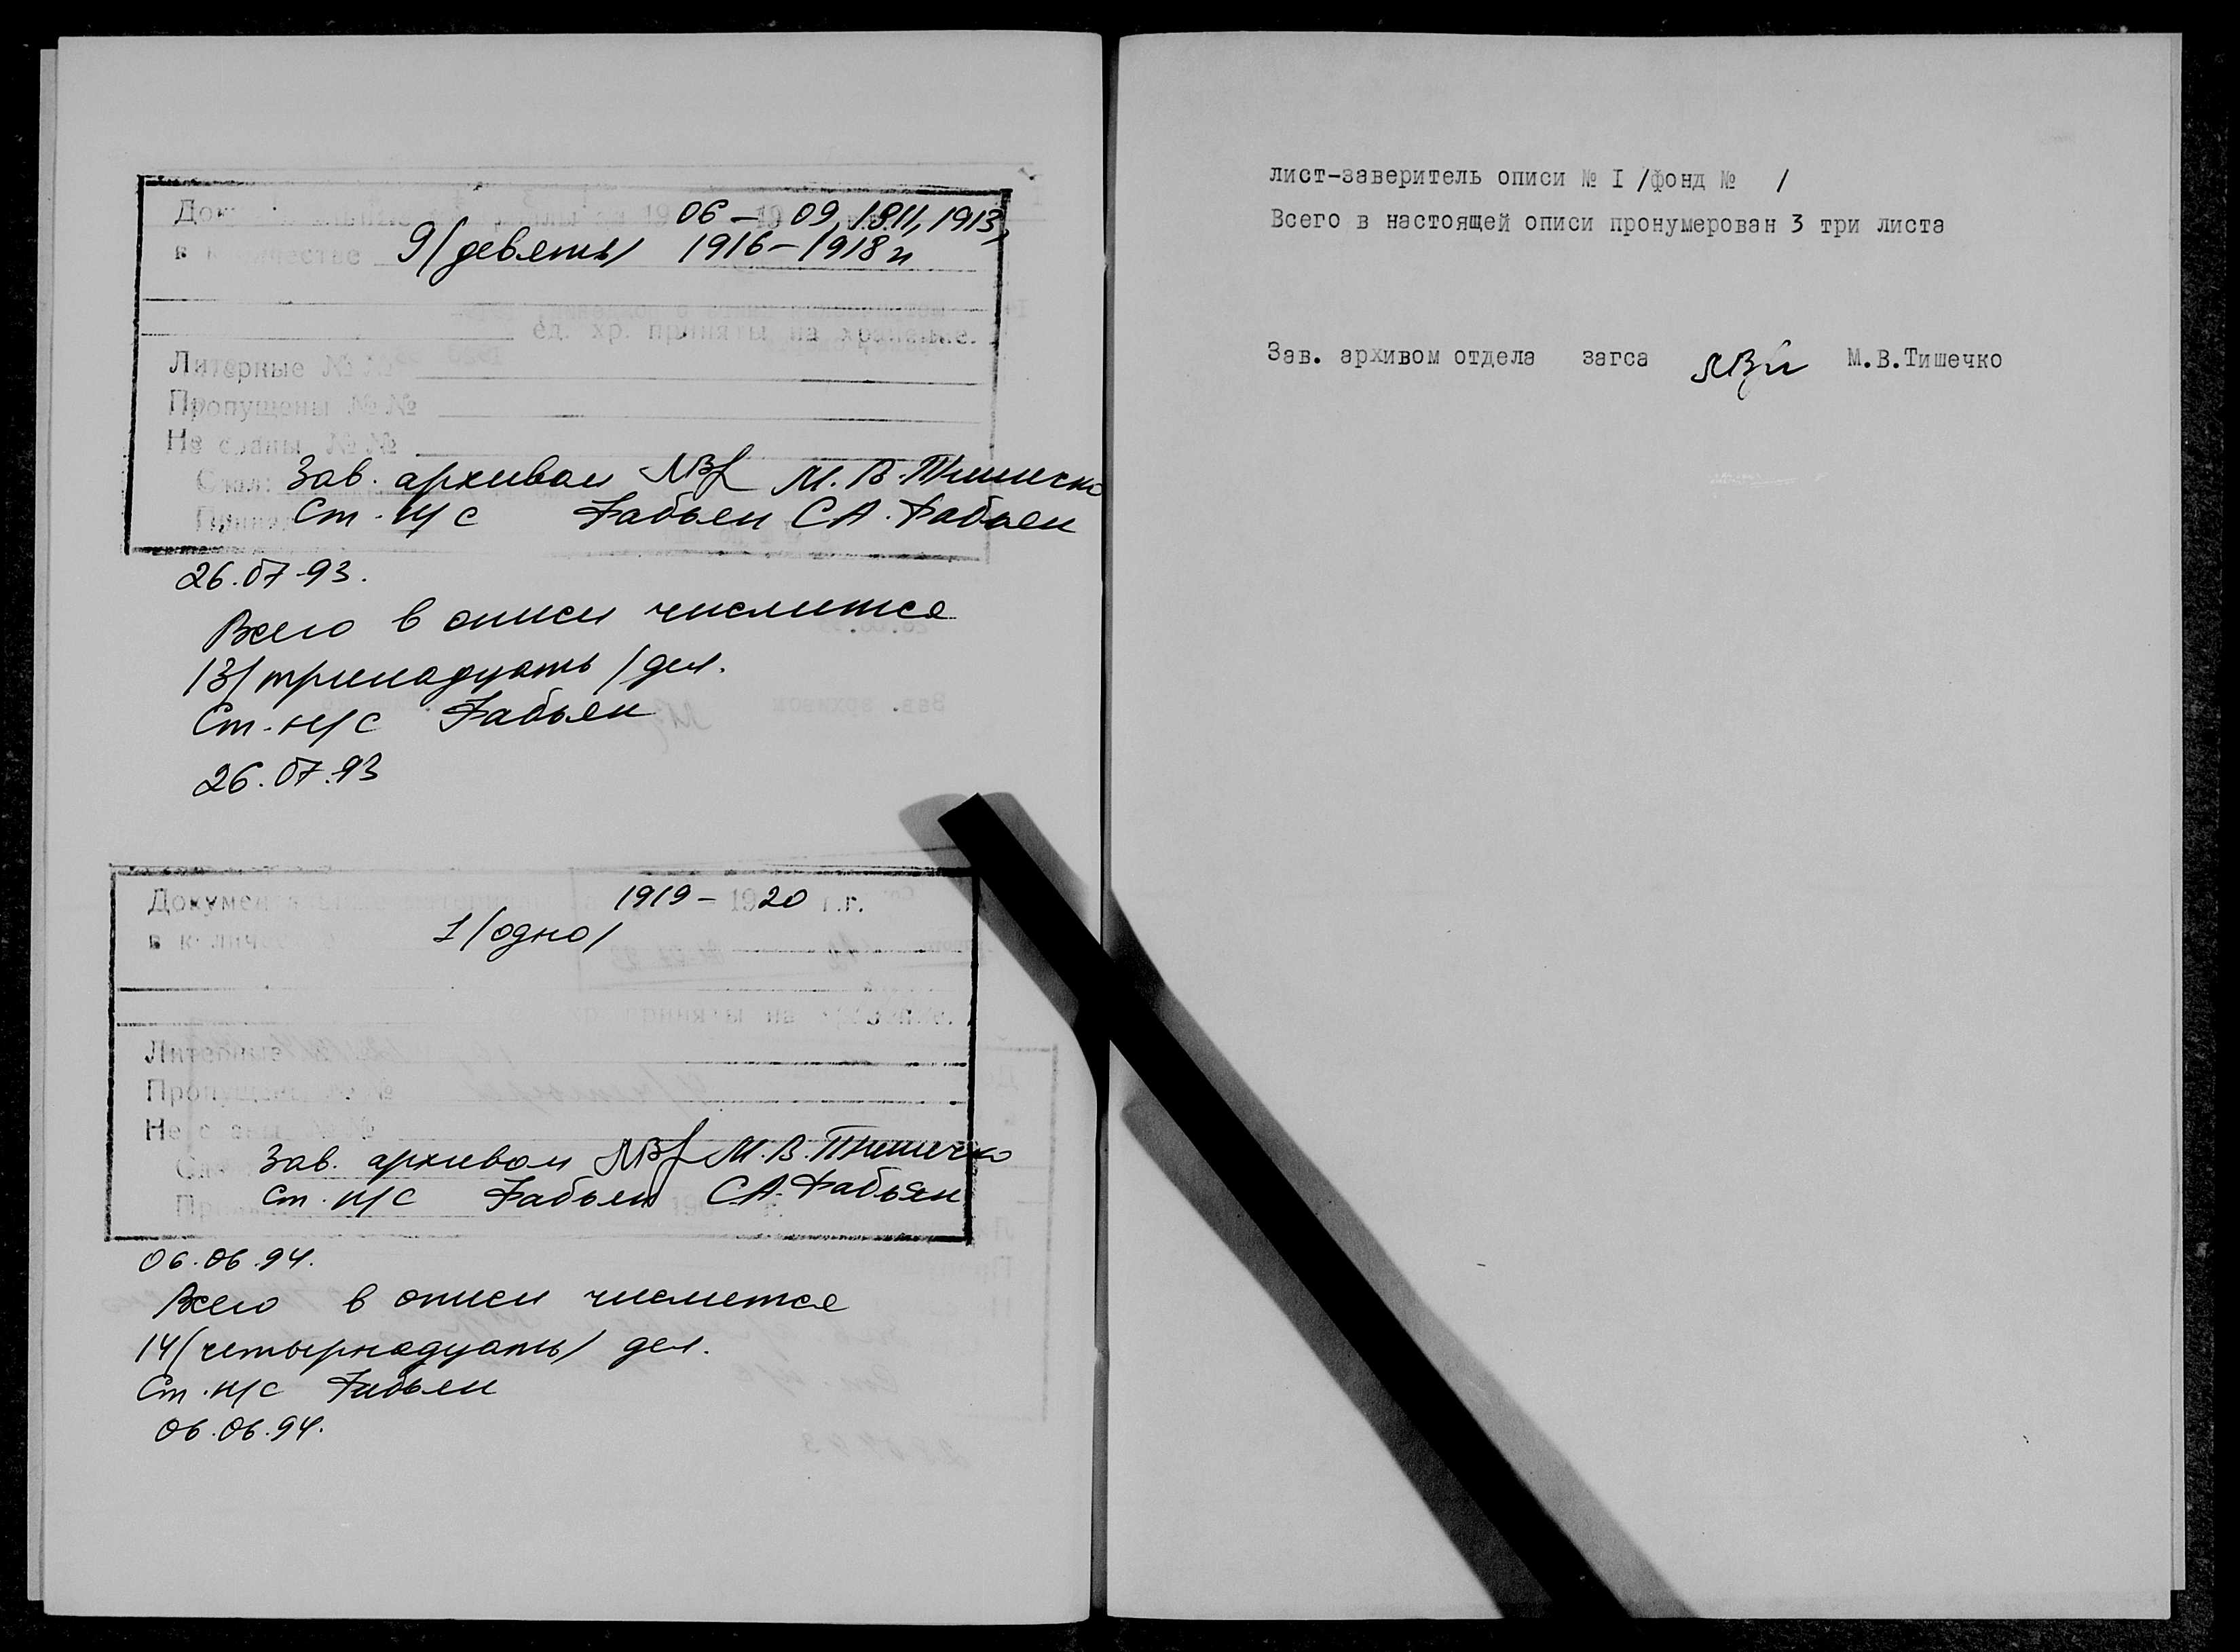 06 – 09, 1911, 1913,
в количестве 9/девять/ 1916 – 1918 гг
ед. хр. приняты на хранение.
Литерные № №
Пропущены № №
Не сданы № №
Зав. архивом М. В. Тишечко
Ст. н/с Фабьян С.А. Фабьян
26.07.93.
Всего в описи числится
13/тринадцать/ дел.
Ст. н/с Фабьян
26.07.93
1919 – 1920 г.г.
в количестве 1/одно/
приняты на хранение.
Литерные
Пропущены № №
Не сданы № №
Зав. архивом М. В. Тишечко
Ст. н/с Фабьян С.А. Фабьян
06.06.94.
Всего в описи числится
14/четырнадцать/ дел.
Ст. н/с Фабьян
06.06.94.
лист-заверитель описи № I /фонд № /
Всего в настоящей описи пронумерован 3 три листа
Зав. архивом отдела загса М.В.Тишечко